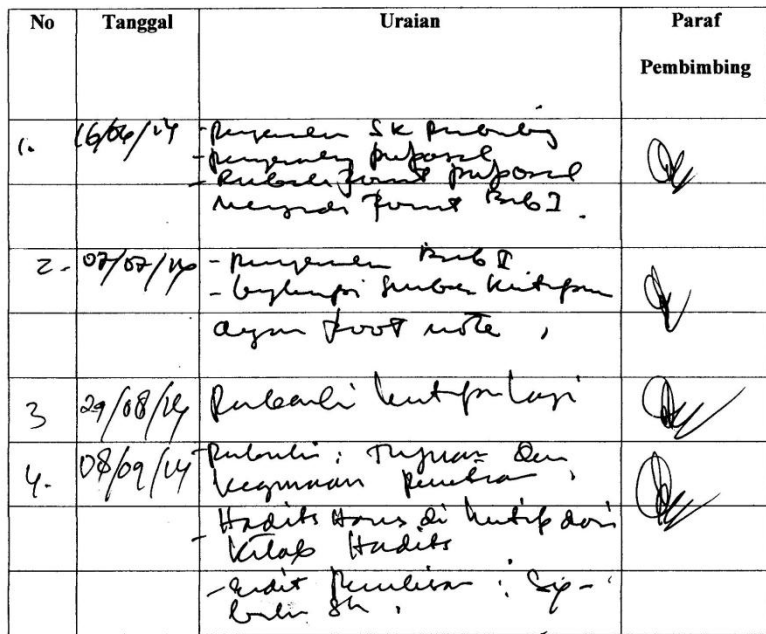 No Tanggal Uraian Paraf
Pembimbing
1. 16/06/14 - Penyerahan SK Pembimbing
- penyerahan proposal
- Perbaiki format proposal
menjadi format Bab I.
2. 07/07/14 - penyerahan Bab II
- lengkapi sumber kutipan
dengan foot note,
3 29/08/14 Perbaiki kutipan lagi
4. 08/09/14 - Perbaiki: Tujuan dan
kegunaan penelitian,
- Hadits Harus di kutip dari
Kitab Hadits
- Edit Penulisan: